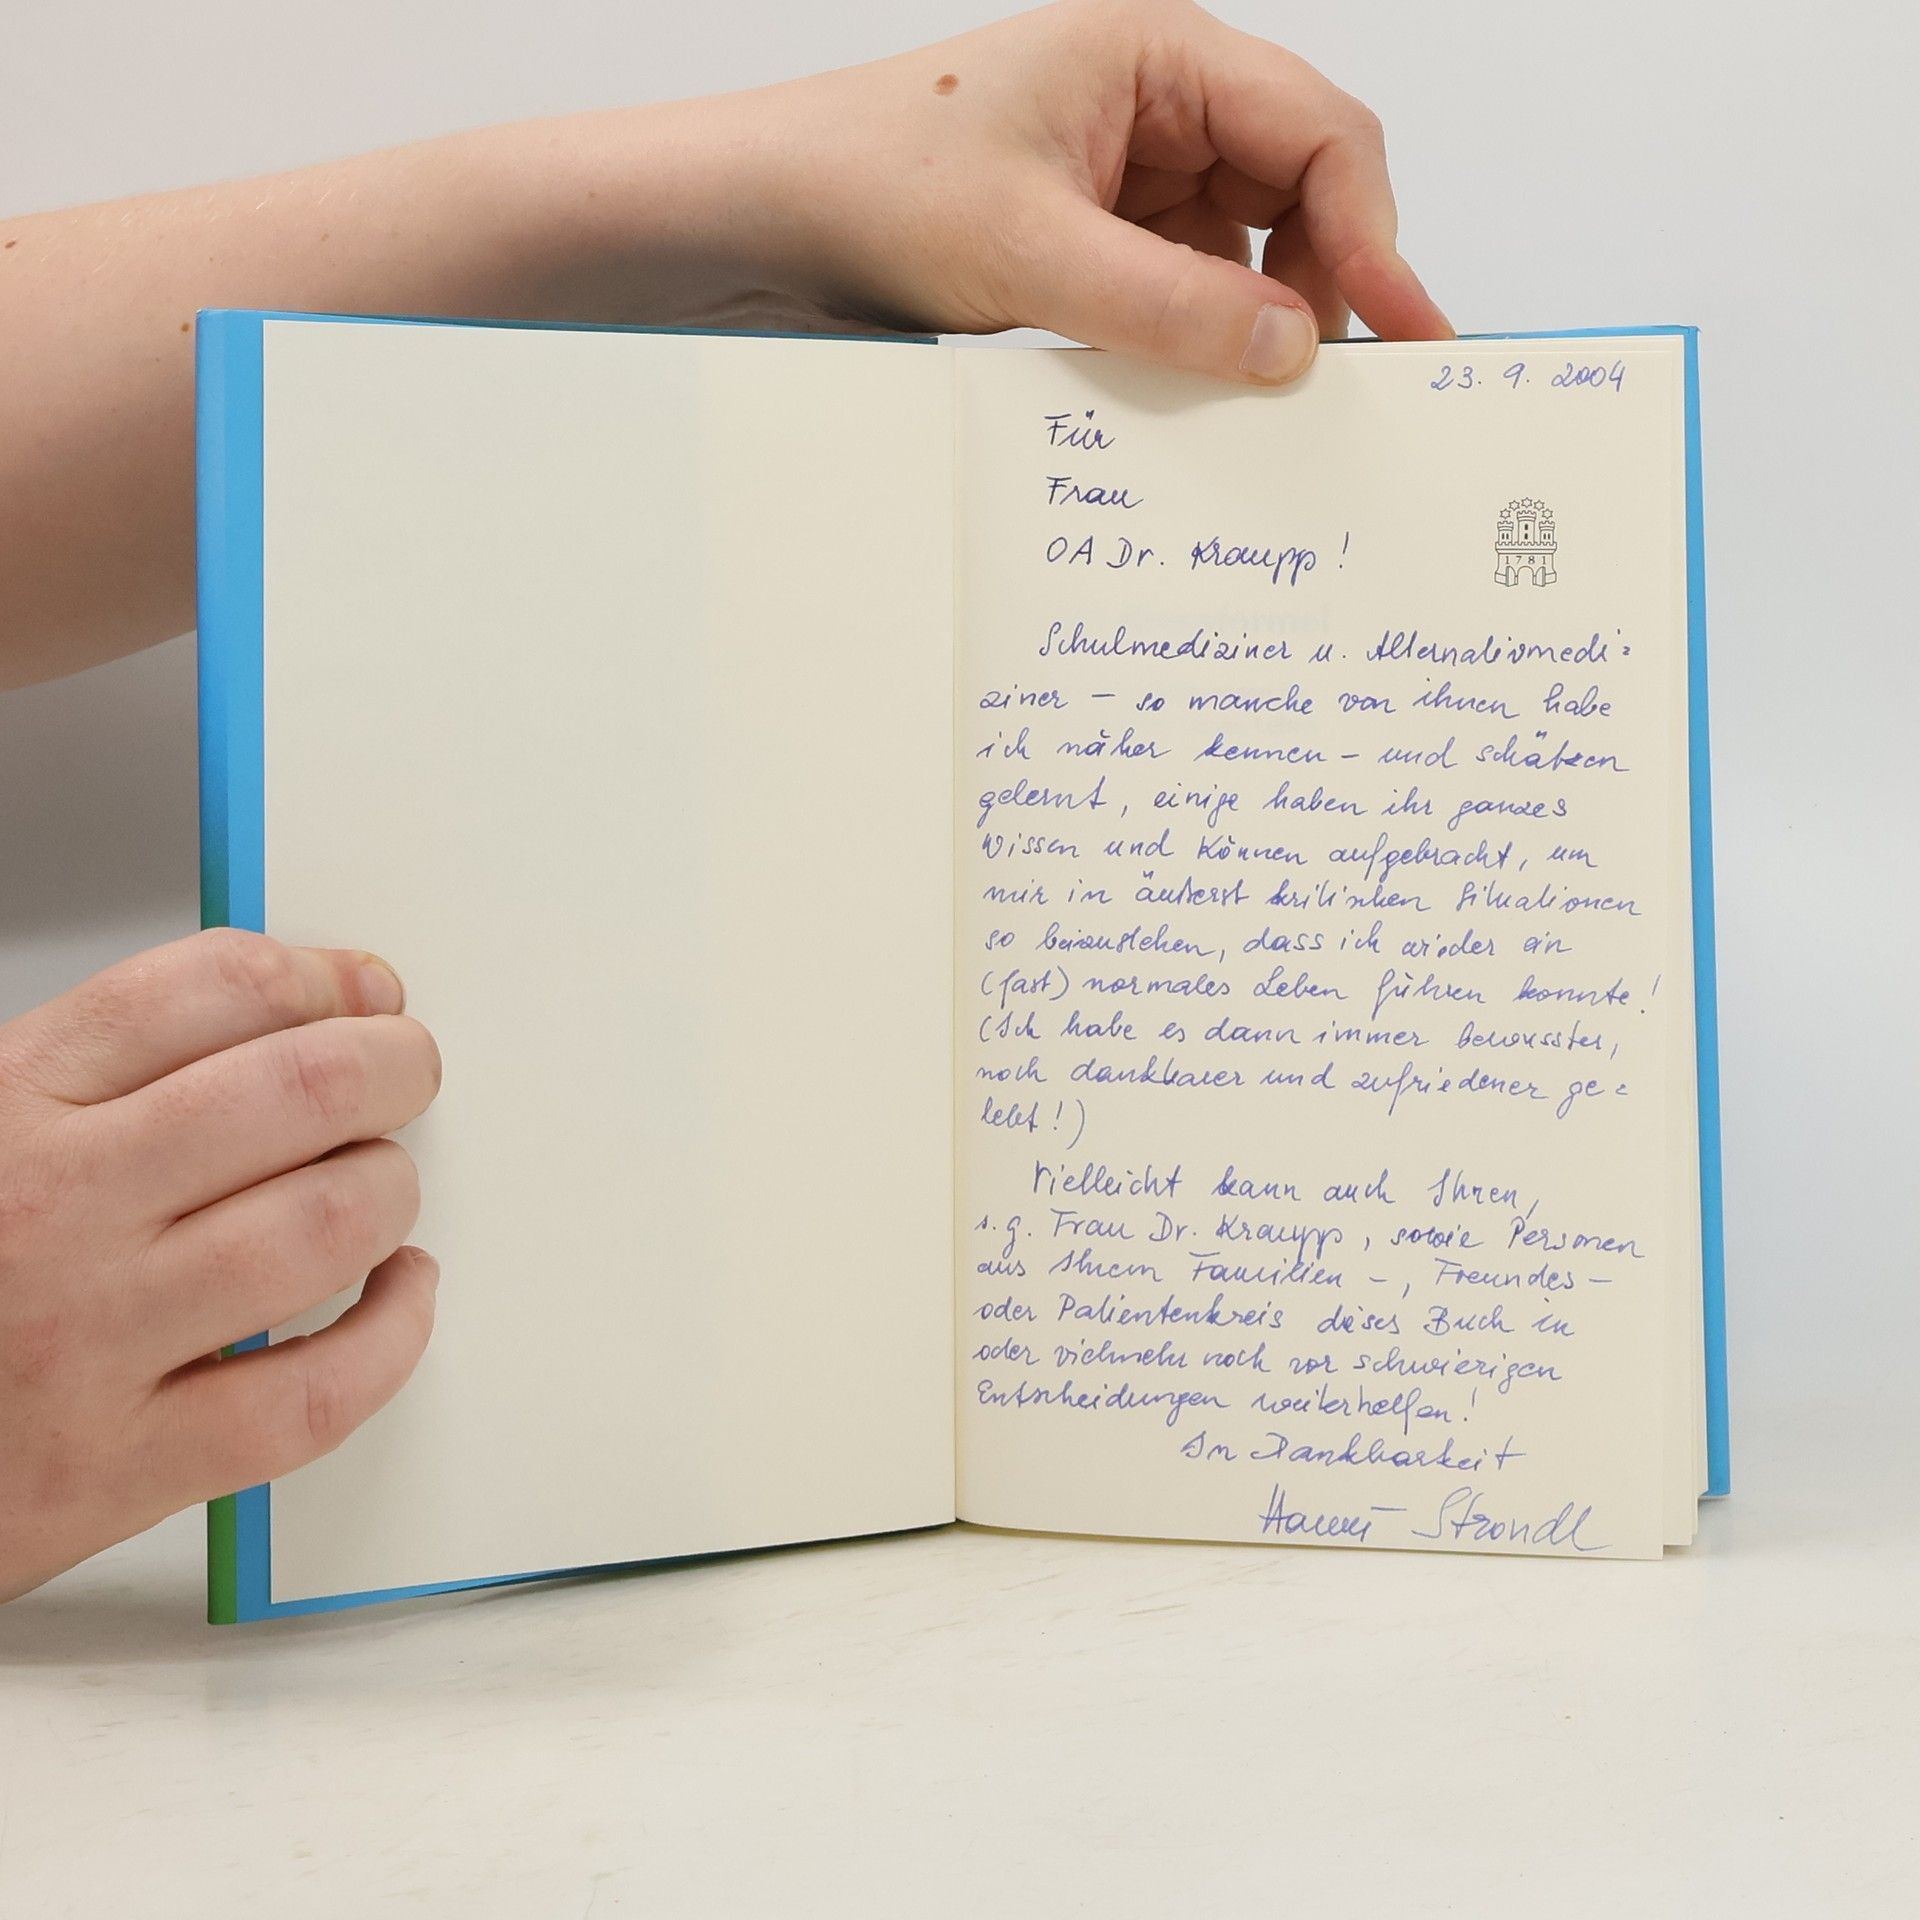 23. 9. 2004
Für
Frau
OA Dr. Kraupp!
1781
Schulmediziner u. Alternativmedi=
ziner – so manche von ihnen habe
ich näher kennen – und schätzen
gelernt, einige haben ihr ganzes
Wissen und Können aufgebracht, um
mir in äußerst kritischen Situationen
so beizustehen, dass ich wieder ein
(fast) normales Leben führen konnte!
(Ich habe es dann immer bewusster,
noch dankbarer und zufriedener ge=
lebt!)
Vielleicht kann auch Ihnen,
s.g. Frau Dr. Kraupp, sowie Personen
aus Ihrem Familien –, Freundes –
oder Patientenkreis dieses Buch in
oder vielmehr noch vor schwierigen
Entscheidungen weiterhelfen!
In Dankbarkeit
Hanni Strondl